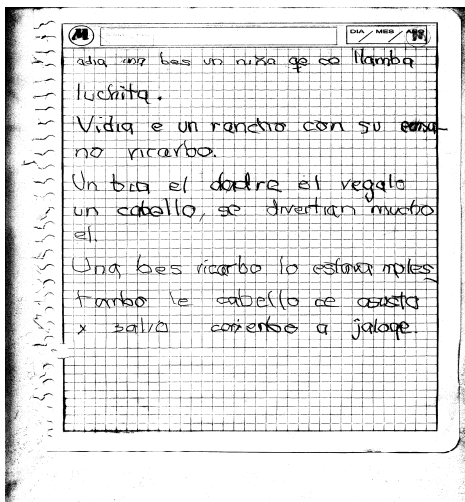 DIA / MES / AÑO
adia una bes un niña qe co llamba
luchita.
Vidia e un rancho con su
no ricarbo.
Un bia el dadre el regalo
un caballo, se divertian mucbo
el.
Una bes ricarbo lo estava
tambo le cabello ce asusta
x salio corienbo a jalope.